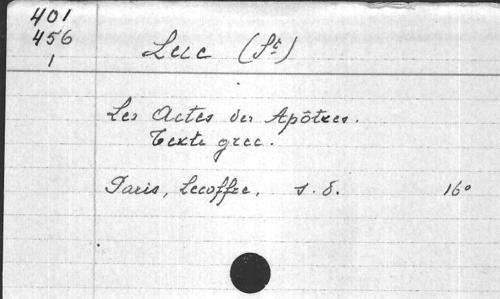 401
456
1
Luc (St)
Les Actes des Apôtres.
Texte grec.
Paris, Lecoffre, s. d. 16°